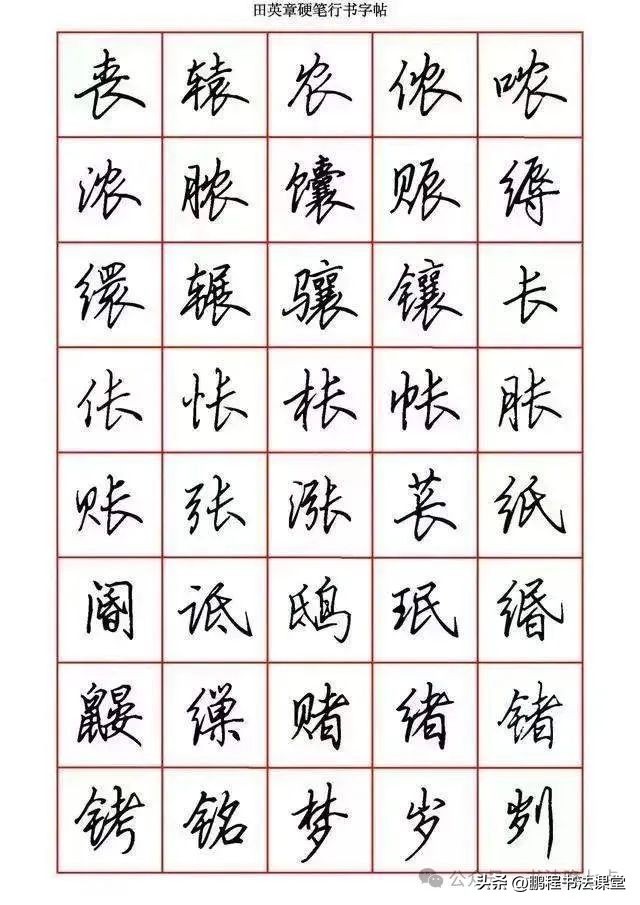 田英章硬笔行书字帖
丧 辕 农 侬 哝
浓 脓 馕 赈 缛
缳 辗 骧 镶 长
伥 怅 枨 帐 胀
账 张 涨 苌 纸
阍 诋 鸱 珉 缗
鼹 缫 赌 绪 锗
铐 铭 梦 岁 刿
头条 @鹏程书法课堂